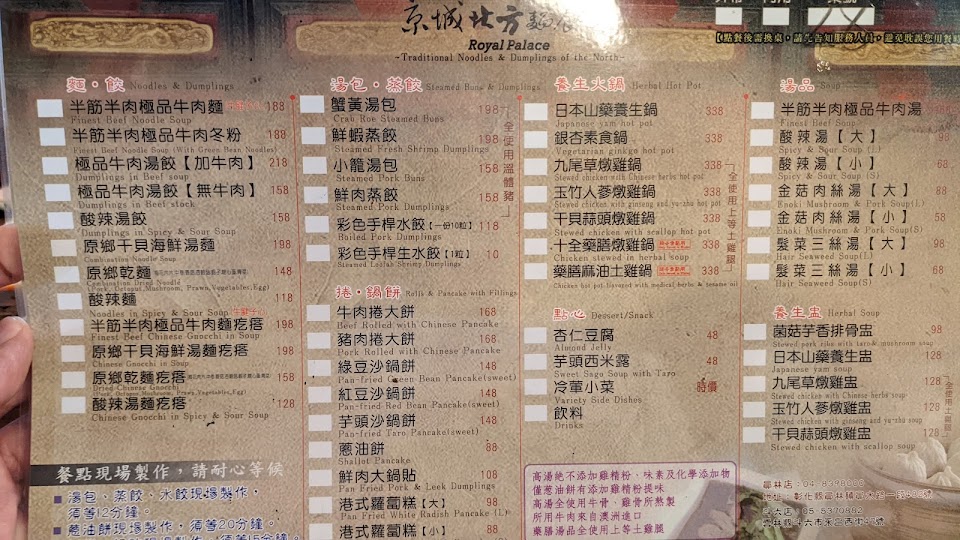 京城北方麵
Royal Palace
~Traditional Noodles & Dumplings of the North~
【點餐後需換桌，請先告知服務人員，避免耽誤您用餐
麵・餃 Noodles & Dumplings
半筋半肉極品牛肉麵 188
Finest Beef Noodle Soup
半筋半肉極品牛肉冬粉 188
Finest Beef Noodle Soup (With Green Bean Noodles)
極品牛肉湯餃【加牛肉】 218
Dumplings in Beef soup
極品牛肉湯餃【無牛肉】 158
Dumplings in Beef stock
酸辣湯餃 158
Dumplings in Spicy & Sour Soup
原鄉干貝海鮮湯麵 198
Combination Noodle Soup
原鄉乾麵 148
Combination Dried Noodle
(Pork, Octopus, Mushroom, Prawn, Vegetables, Egg)
酸辣麵 118
Noodles in Spicy & Sour Soup
半筋半肉極品牛肉麵疙瘩 198
Finest Beef Chinese Gnocchi in Soup
原鄉干貝海鮮湯麵疙瘩 198
Chinese Gnocchi in Soup
原鄉乾麵疙瘩 158
Dried Chinese Gnocchi
(Pork, Octopus, Mushroom, Prawn, Vegetables, Egg)
酸辣湯麵疙瘩 128
Chinese Gnocchi in Spicy & Sour Soup
餐點現場製作，請耐心等候
■ 湯包、蒸餃、水餃現場製作，
須等12分鐘。
■ 蔥油餅現場製作，須等20分鐘。
湯包・蒸餃 Steamed Buns & Dumplings
蟹黃湯包 198
Crab Roe Steamed Buns
鮮蝦蒸餃 198
Steamed Fresh Shrimp Dumplings
小籠湯包 158
Steamed Pork Buns
鮮肉蒸餃 158
Steamed Pork Dumplings
彩色手桿水餃【一份10粒】 118
Boiled Pork Dumplings
彩色手桿生水餃【1粒】 10
「全使用溫體豬」
捲・鍋餅 Rolls & Pancake with Fillings
牛肉捲大餅 168
Beef Rolled with Chinese Pancake
豬肉捲大餅 168
Pork Rolled with Chinese Pancake
綠豆沙鍋餅 148
Pan-fried Green Bean Pancake(sweet)
紅豆沙鍋餅 148
Pan-fried Red Bean Pancake(sweet)
芋頭沙鍋餅 148
Pan-fried Taro Pancake(sweet)
蔥油餅 88
Shallot Pancake
鮮肉大鍋貼 108
Pan Fried Pork & Leek Dumplings
港式蘿蔔糕【大】 98
Pan Fried White Radish Pancake (L)
港式蘿蔔糕【小】 88
養生火鍋 Herbal Hot Pot
日本山藥養生鍋 338
Japanese yam hot pot
銀杏素食鍋 338
Vegetarian ginkgo hot pot
九尾草燉雞鍋 338
Stewed chicken with Chinese herbs hot pot
玉竹人蔘燉雞鍋 338
Stewed chicken with ginseng and yu-zhu hot pot
干貝蒜頭燉雞鍋 338
Stewed chicken with scallop hot pot
十全藥膳燉雞鍋 338
Chicken stewed in herbal soup
藥膳麻油土雞鍋 338
Chicken hot pot flavored with medical herbs & sesame oil
「全使用上等土雞腿」
點心 Dessert/Snack
杏仁豆腐 48
Almond Jelly
芋頭西米露 48
Sweet Sago Soup with Taro
冷葷小菜 時價
Variety Side Dishes
飲料
Drinks
高湯絶不添加雞精粉、味素及化學添加物
僅蔥油餅有添加雞精粉提味
高湯全使用牛骨、雞骨所熬製
所用牛肉來自澳洲進口
藥膳湯品全使用上等土雞腿
湯品 Soup
半筋半肉極品牛肉湯
Finest Beef Soup
酸辣湯【大】 98
Spicy & Sour Soup (L)
酸辣湯【小】 68
Spicy & Sour Soup (S)
金菇肉絲湯【大】 88
Enoki Mushroom & Pork Soup(L)
金菇肉絲湯【小】 58
Enoki Mushroom & Pork Soup(S)
髮菜三絲湯【大】 98
Hair Seaweed Soup(L)
髮菜三絲湯【小】 68
Hair Seaweed Soup(S)
養生盅 Herbal Soup
菌菇芋香排骨盅 98
Stewed pork ribs with taro & mushroom soup
日本山藥養生盅 128
Japanese yam soup
九尾草燉雞盅 128
Stewed chicken with Chinese herbs soup
玉竹人蔘燉雞盅 128
Stewed chicken with ginseng and yu-zhu soup
干貝蒜頭燉雞盅 128
Stewed chicken with scallop soup
「全使用上等土雞腿」